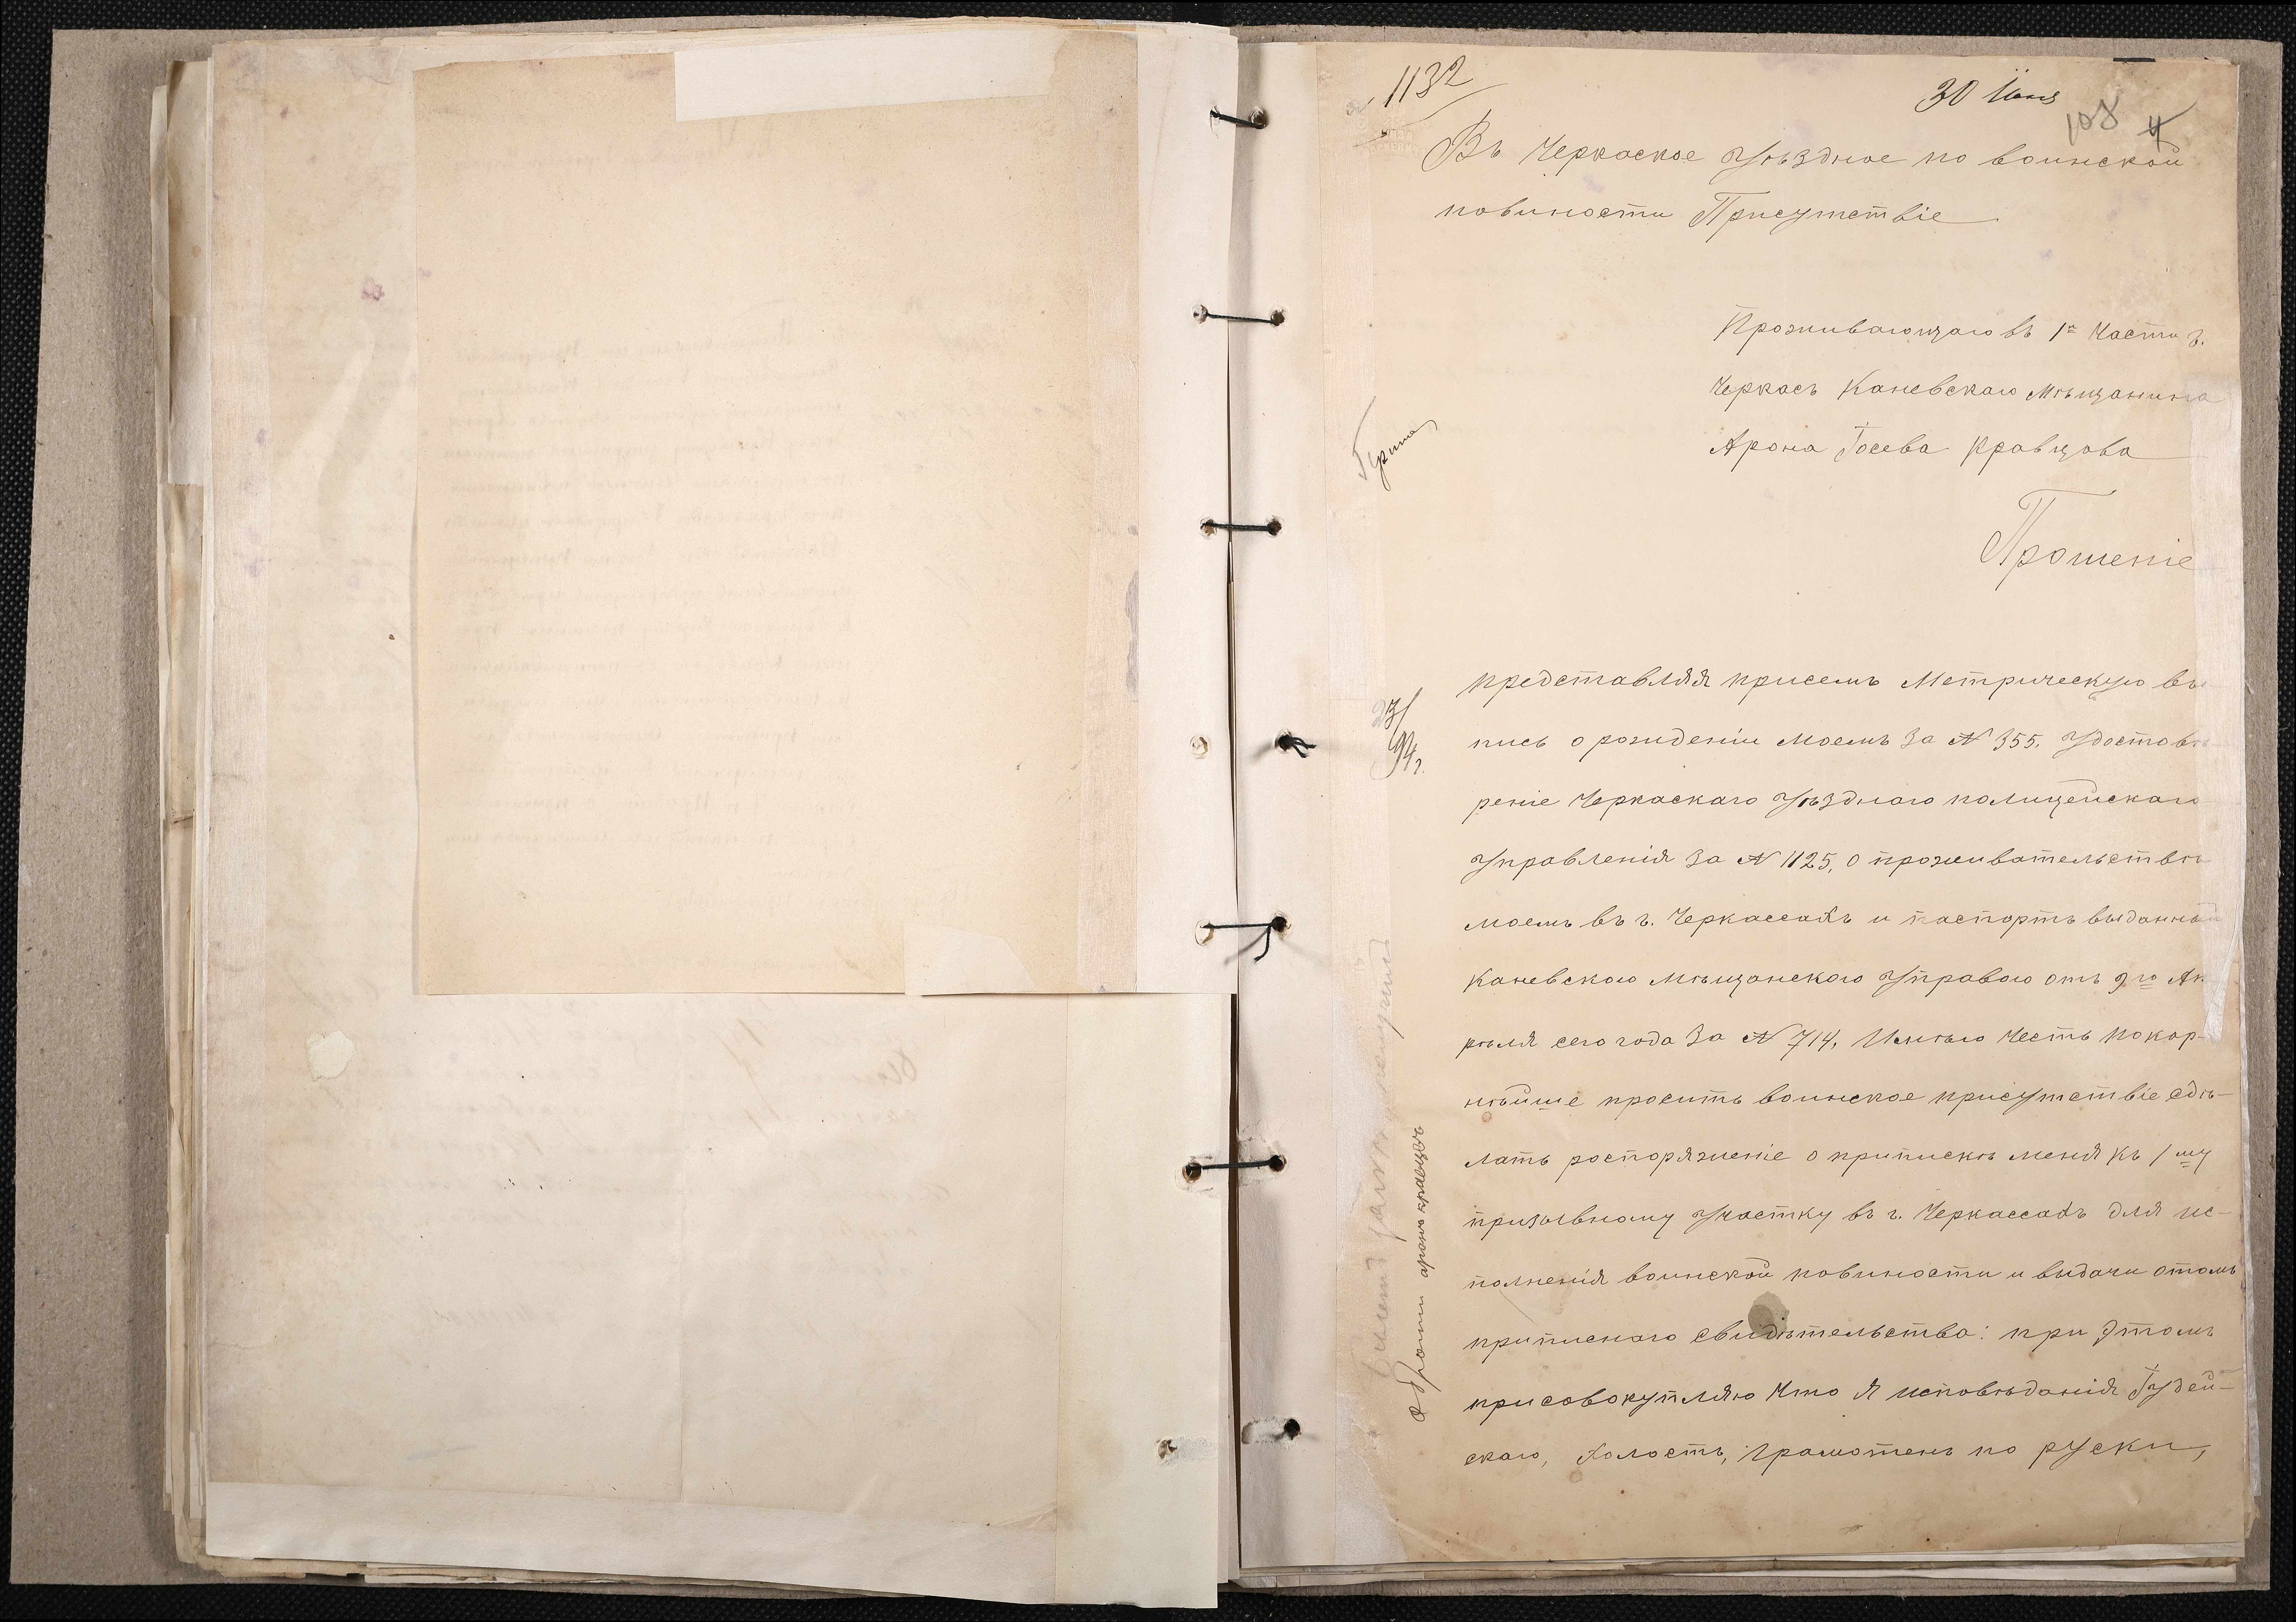 1132
30 Июня
108 4
Въ Черкаское Уѣздное по воинской
повиности Присутствіе
Проживающаго въ 1й Части г.
Черкасъ Каневскаго Мѣщанина
Арона Іосева Кравцова
Прошеніе
представляя присемъ Метрическую вы
пись о рожденіи моемъ за № 355. Удостовѣ-
реніе Черкаскаго Уѣзднаго полицейскаго
Управленія за № 1125, о проживательствѣ
моемъ въ г. Черкассахъ и паспортъ выданный
Каневскою Мѣщанскою Управою отъ 9го Ап
рѣля сего года за № 714, Имѣю Честь покор-
нѣйше просить воинское присутствіе сдѣ-
лать роспоряженіе о припискѣ меня къ 1му
призывному Участку въ г. Черкассахъ для ис-
полненія воинской повиности и выдачи отомъ
приписнаго свидѣтельства: при этомъ
присовокупляю Что Я исповѣданія Іудей-
скаго, Холостъ, грамотенъ по руски,
94г.
аронъ кравцовъ